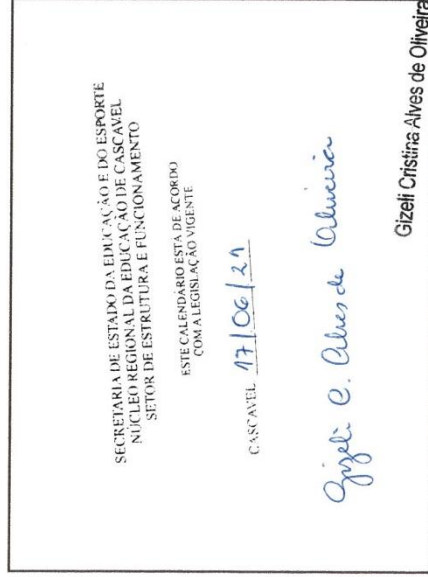 SECRETARIA DE ESTADO DA EDUCAÇÃO E DO ESPORTE
NÚCLEO REGIONAL DA EDUCAÇÃO DE CASCAVEL
SETOR DE ESTRUTURA E FUNCIONAMENTO
ESTE CALENDÁRIO ESTÁ DE ACORDO
COM A LEGISLAÇÃO VIGENTE
CASCAVEL 17/06/21
Gizeli C. Alves de Oliveira
Gizeli Cristina Alves de Oliveira